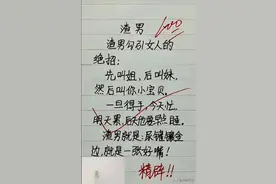 渣男
100
渣男勾引女人的
绝招:
先叫姐,后叫妹,
然后叫你小宝贝,
一旦得手,今天忙,
明天累,后天
渣男就是:尿罐镶金
边,就是一张好嘴!
精辟!!